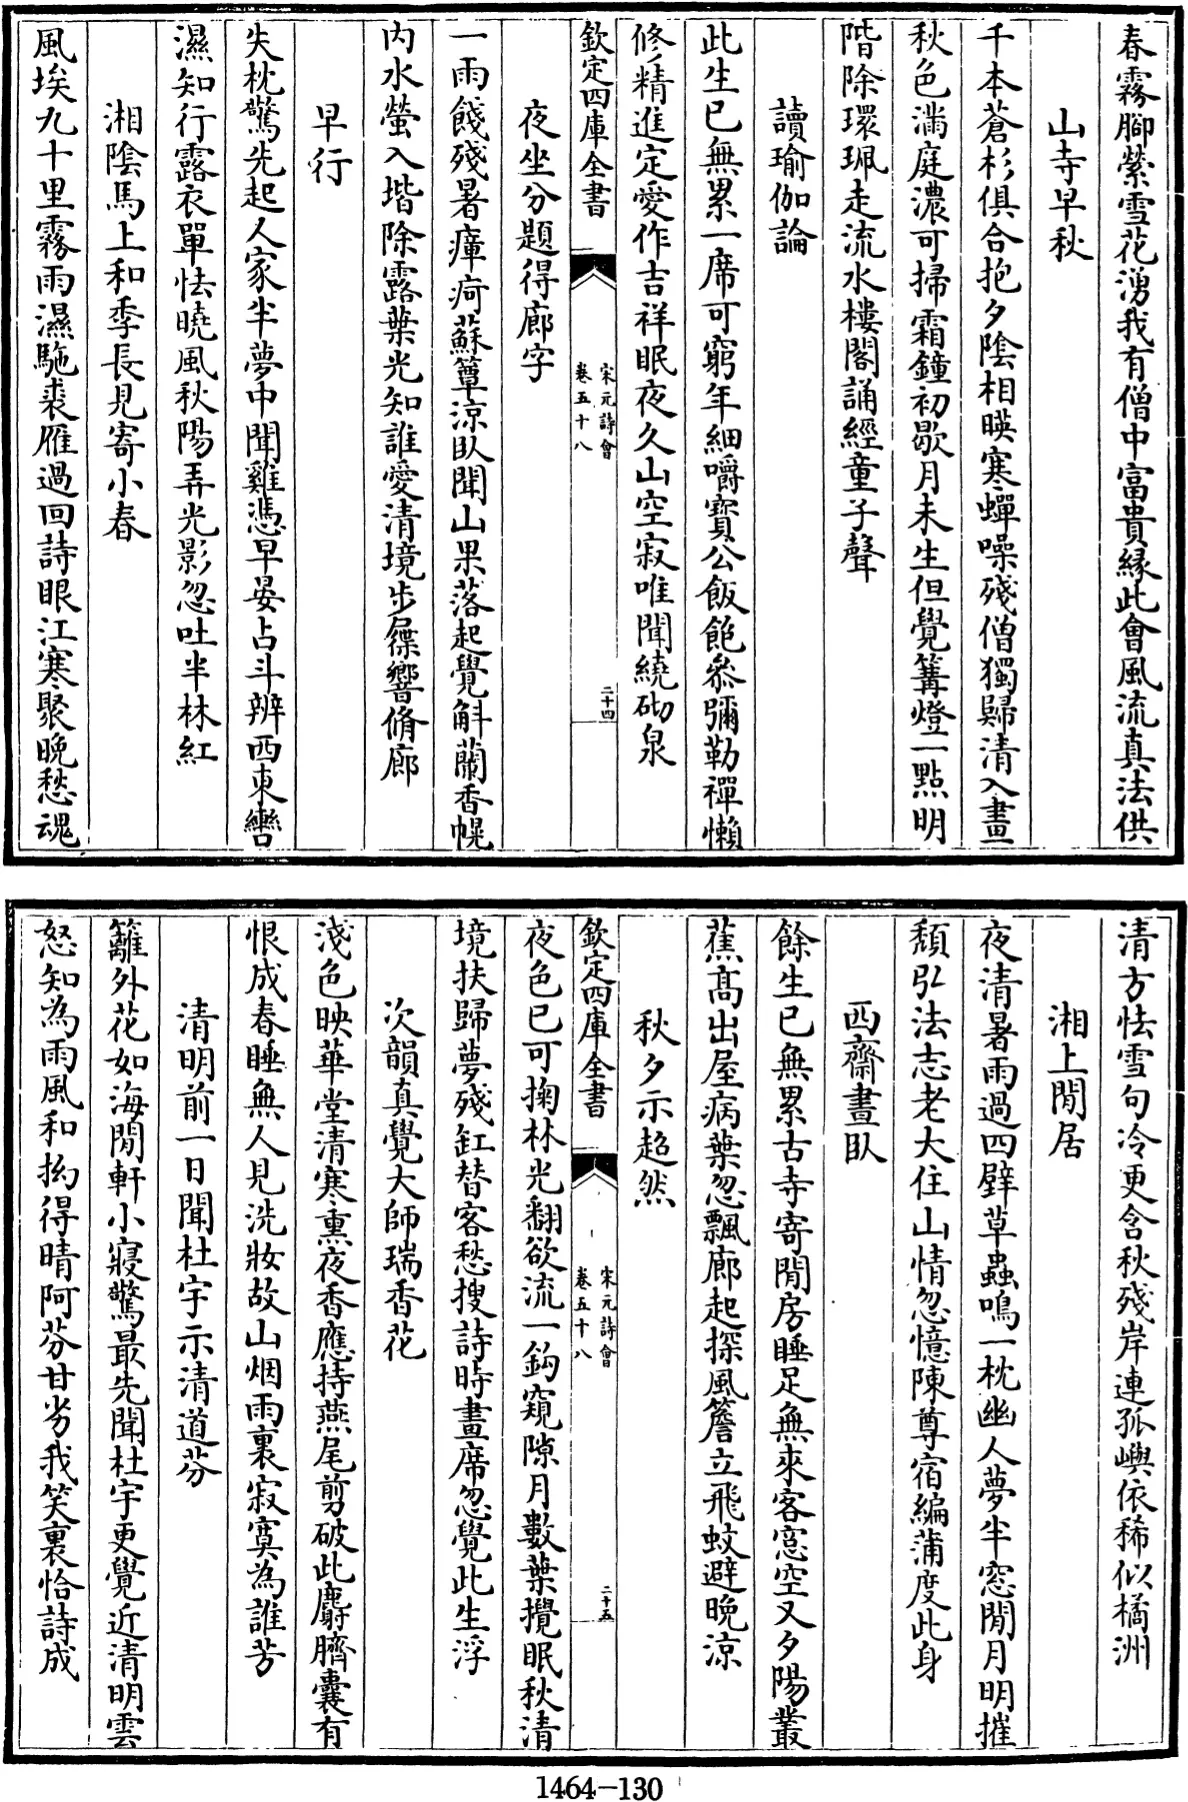 春霧腳縈雪花湧我有僧中富貴緣此會風流真法供
山寺早秋
千本蒼杉俱合抱夕陰相暎寒蟬噪殘僧獨歸清入畫
秋色滿庭濃可掃霜鐘初歇月未生但覺篝燈一點明
階除環珮走流水樓閣誦經童子聲
讀瑜伽論
此生已無累一席可窮年細嚼寳公飯飽叅彌勒禪懶
修精進定愛作吉祥眠夜久山空寂唯聞繞砌泉
欽定四庫全書
宋元詩會
卷五十八
二十四
夜坐分題得廊字
一雨餞殘暑痺疴蘇簟涼臥聞山果落起覺斛蘭香幌
内水螢入堦除露葉光知誰愛清境步屧響脩廊
早行
失枕驚先起人家半夢中聞雞憑早晏占斗辨西東轡
濕知行露衣單怯曉風秋陽弄光影忽吐半林紅
湘陰馬上和季長見寄小春
風埃九十里霧雨濕駞裘雁過回詩眼江寒聚晚愁魂
清方怯雪句冷更含秋殘岸連孤嶼依稀似橘洲
湘上閒居
夜清暑雨過四壁草蟲鳴一枕幽人夢半窓閒月明摧
頽弘法志老大住山情忽憶陳尊宿編蒲度此身
西齋晝臥
餘生已無累古寺寄閒房睡足無來客窓空又夕陽叢
蕉高出屋病葉忽飄廊起探風簷立飛蚊避晚涼
秋夕示超然
欽定四庫全書
宋元詩會
卷五十八
二十五
夜色已可掬林光翻欲流一鈎窺隙月數葉攪眠秋清
境扶歸夢殘缸替客愁搜詩時晝席忽覺此生浮
次韻真覺大師瑞香花
淺色映華堂清寒熏夜香應持燕尾剪破此麝臍囊有
恨成春睡無人見洗妝故山烟雨裏寂寞為誰芳
清明前一日聞杜宇示清道芬
籬外花如海閒軒小寢驚最先聞杜宇更覺近清明雲
怒知為雨風和拗得晴阿芬甘劣我笑裏恰詩成
1464-130